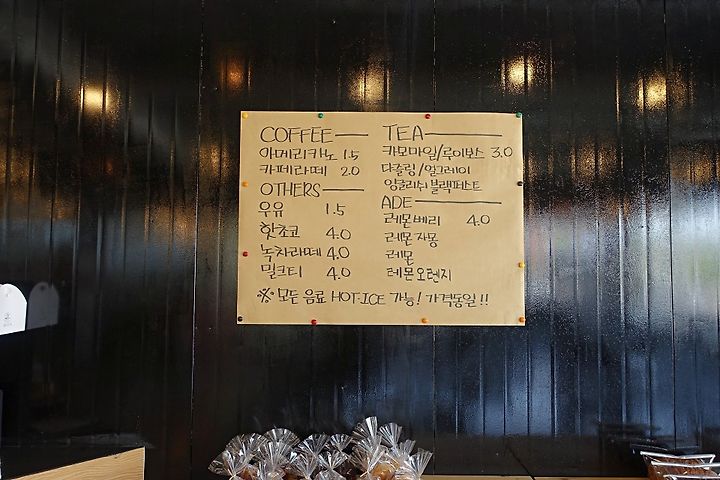 COFFEE
아메리카노 1.5
카페라떼 2.0
OTHERS
우유 1.5
핫쵸코 4.0
녹차라떼 4.0
밀크티 4.0
TEA
캬모마일/루이보스 3.0
다즐링/얼그레이
잉글리쉬 블랙퍼스트
ADE
레몬베리 4.0
레몬자몽
레몬
레몬오렌지
※ 모든 음료 HOT·ICE 가능! 가격동일!!